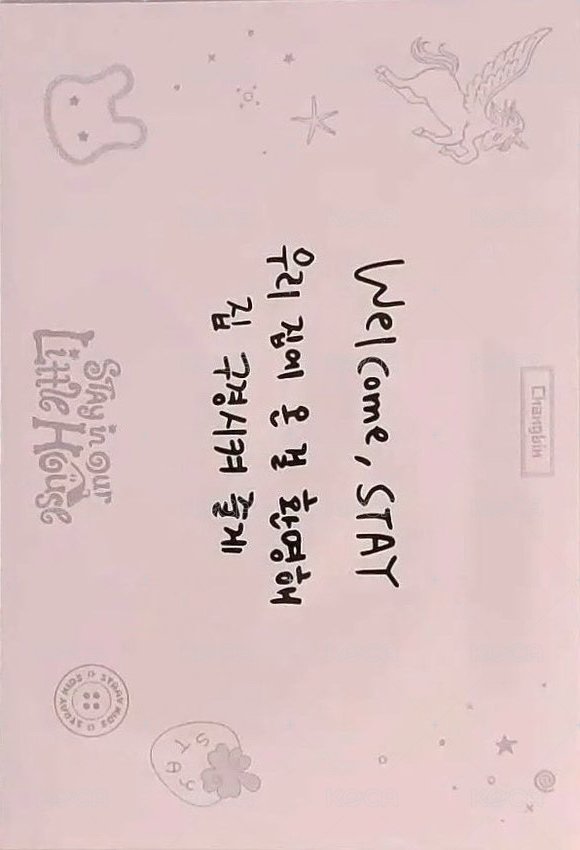 Changbin
Welcome, STAY
우리 집에 온 걸 환영해
집 구경시켜 줄게
STAY in OUR
Little House
STRAY KIDS STRAY KIDS
STAY